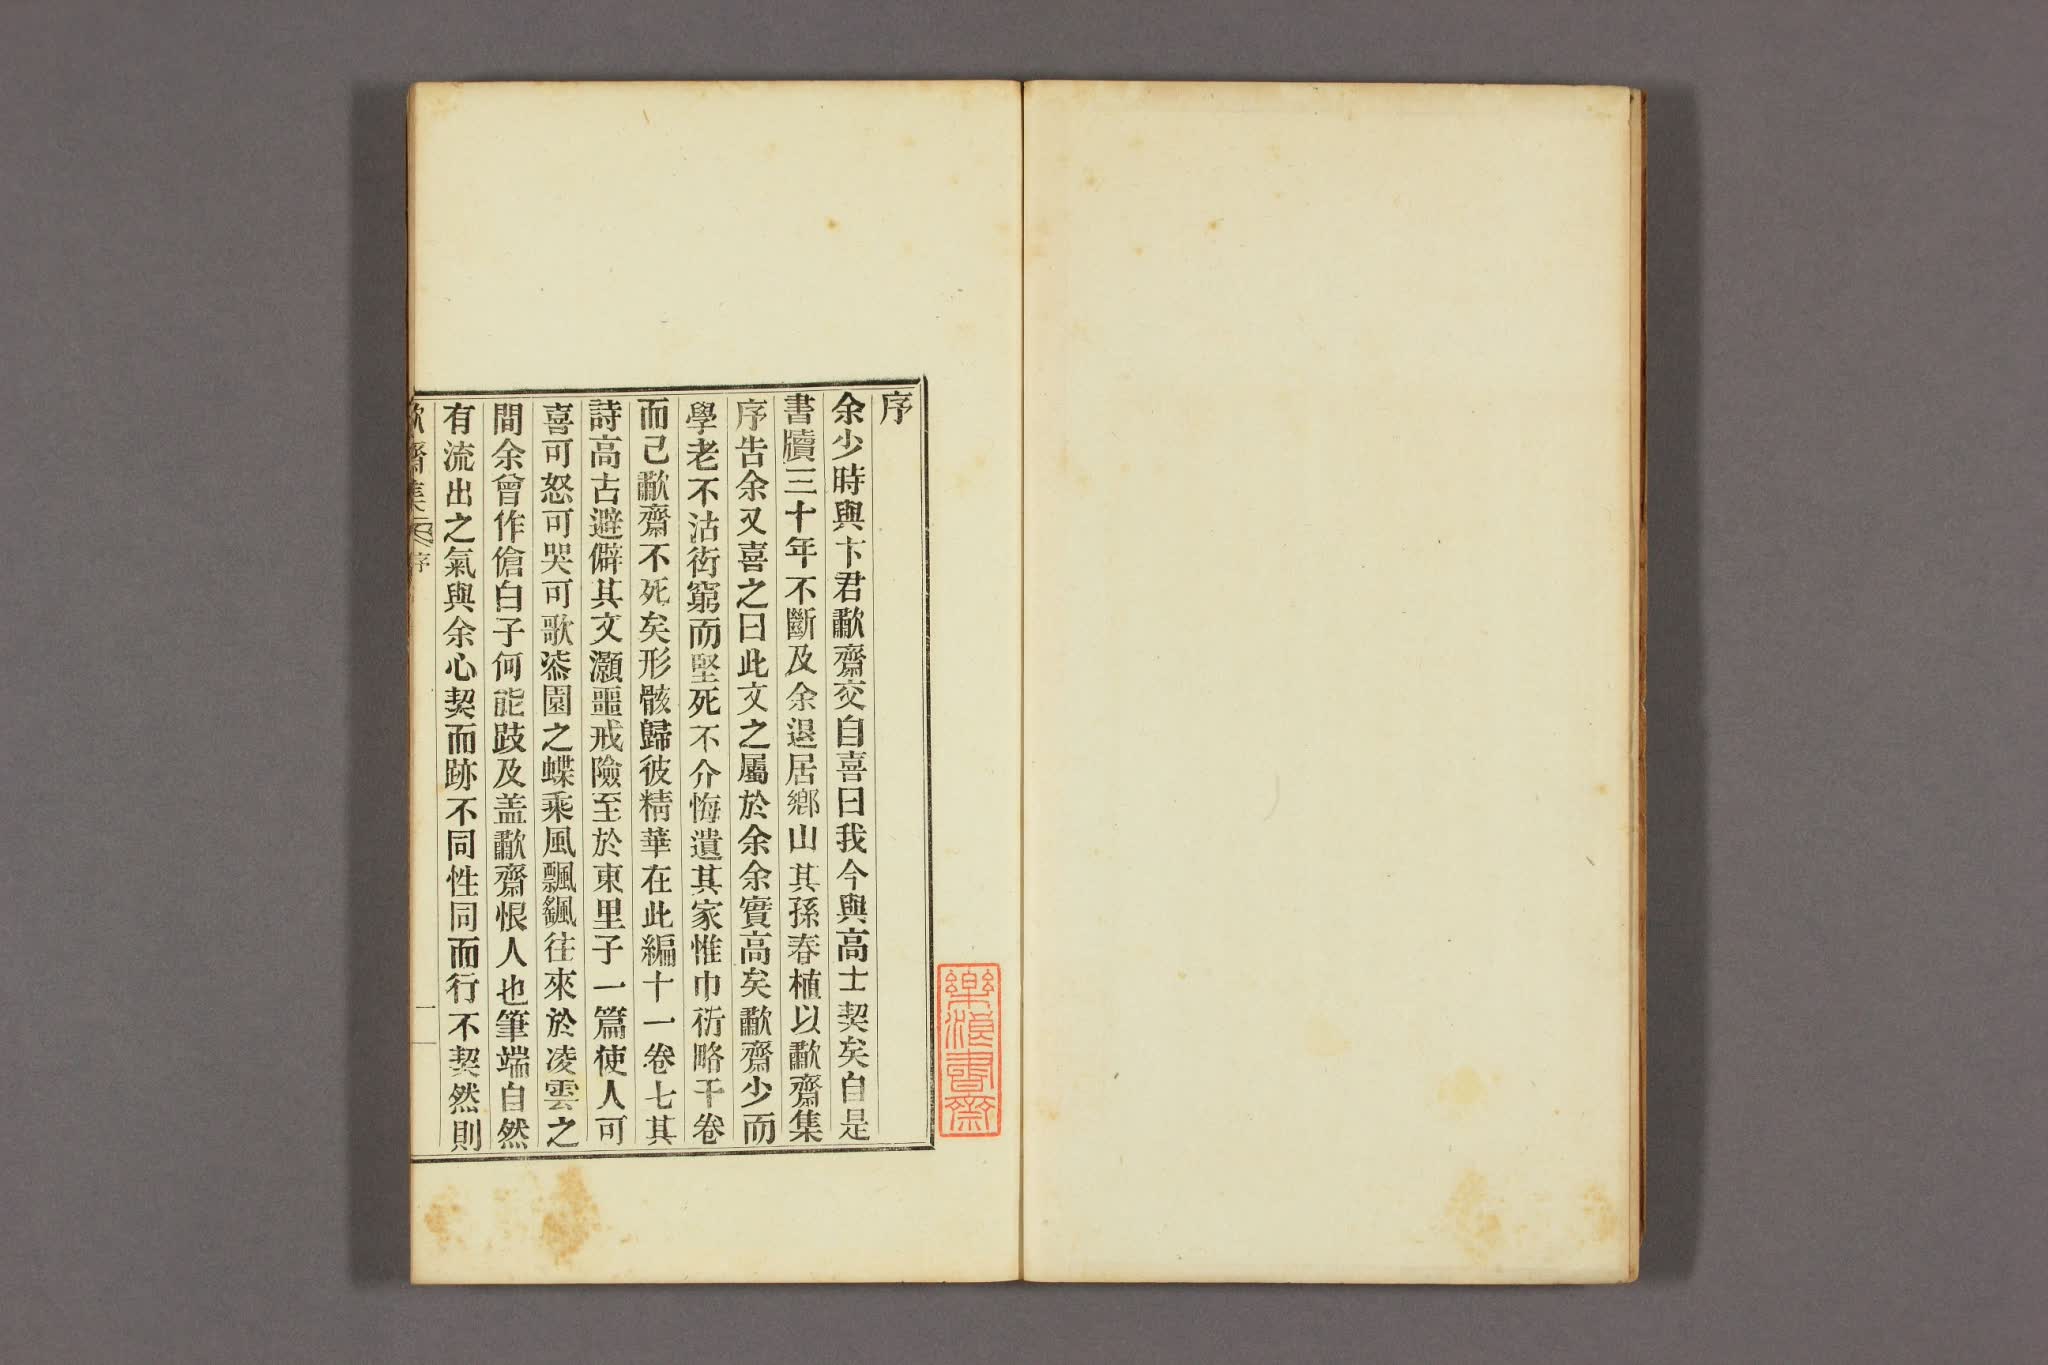 序
余少時與卞君歗齋交自喜曰我今與高士契矣自是
書牘三十年不斷及余退居鄕山其孫春植以歗齋集
序告余又喜之曰此文之屬於余余實高矣歗齋少而
學老不沽衒窮而堅死不介悔遺其家惟巾衍略干卷
而已歗齋不死矣形骸歸彼精華在此編十一卷七其
詩高古避僻其文灝噩戒險至於東里子一篇使人可
喜可怒可哭可歌漆園之蝶乘風飄颻往來於凌雲之
間余曾作傖白子何能跂及盖歗齋恨人也筆端自然
有流出之氣與余心契而跡不同性同而行不契然則
歗齋集 序 一
樂浪書齋